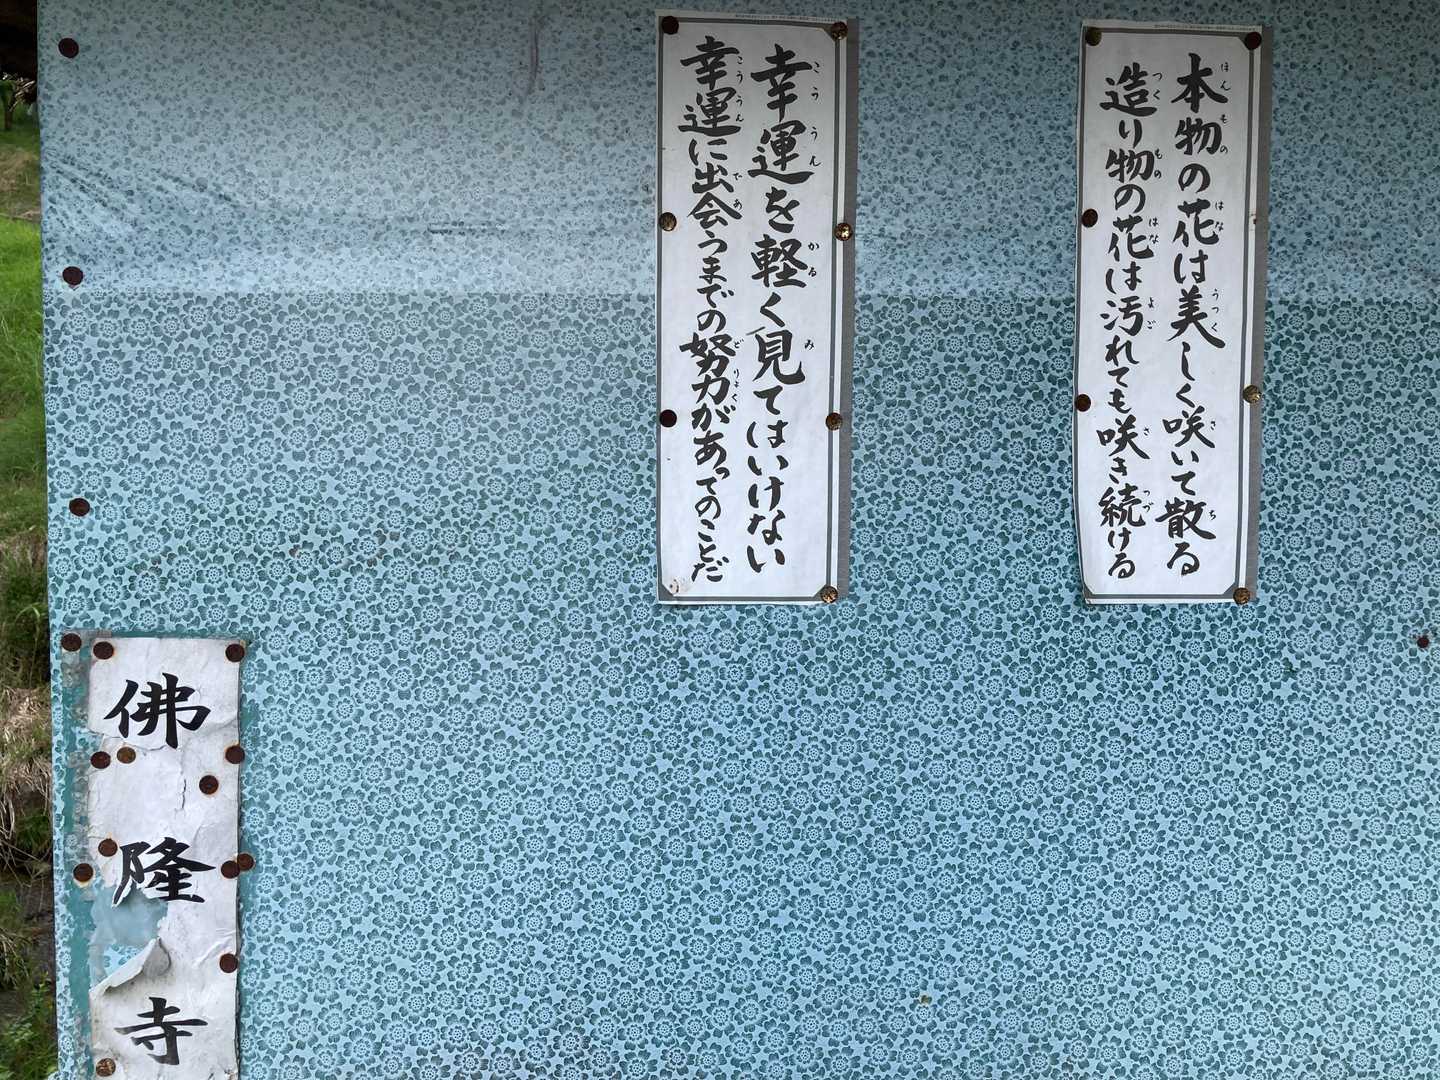 本物の花は美しく咲いて散る
造り物の花は汚れても咲き続ける
幸運を軽く見てはいけない
幸運に出会うまでの努力があってのことだ
佛隆寺